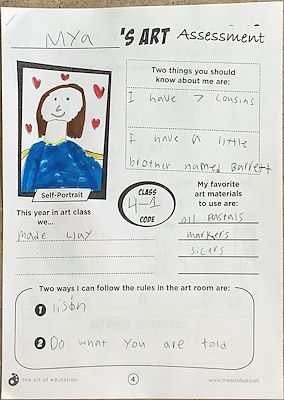 Mya 'S ART Assessment
Two things you should
know about me are:
I have 7 cousins
I have a little
brother named Barrett
Self-Portrait
CLASS
4-1
CODE
My favorite
art materials
to use are:
oil pastals
markers
sicers
This year in art class
we...
made clay
Two ways I can follow the rules in the art room are:
1 lison
2 Do what you are told
the art of education
4
www.theartofed.com